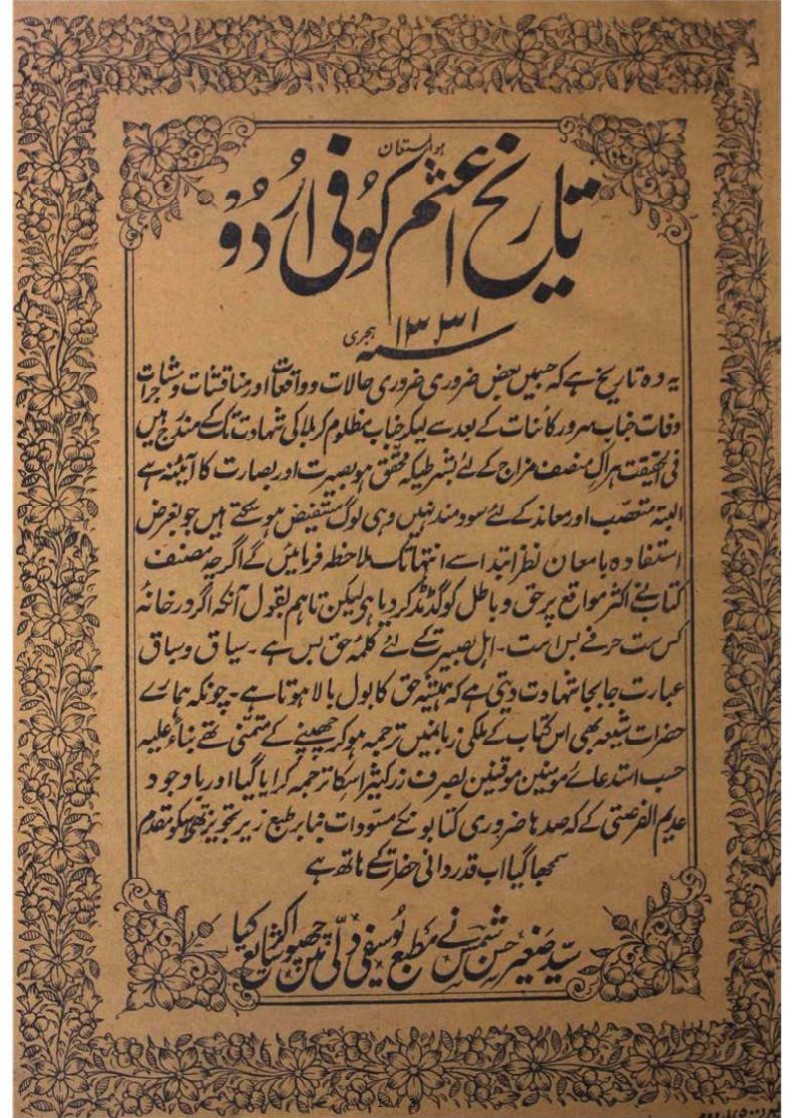 ہو المستعان
تاریخ اعثم کوفی اردو
سنہ ۱۳۳۱ ہجری
یہ وہ تاریخ ہے کہ جسمیں بعض ضروری ضروری حالات و واقعات اور مناقشات و مشاجرات
وفات جناب سرور کائنات کے بعد سے لیکر جناب مظلوم کربلا کی شہادت تک کے مندرج ہیں
فی الحقیقت ہر اک منصف مزاج کے لئے بشرطیکہ محقق ہو بصیرت اور بصارت کا آئینہ ہے
البتہ متعصب اور معاند کے لئے سود مند نہیں وہی لوگ مستفیض ہوسکتے ہیں جو بغرض
استفادہ بامعان نظر ابتدا سے انتہا تک ملاحظہ فرمائیں گے اگرچہ مصنف
کتاب نے اکثر مواقع پر حق و باطل کو گڈمڈ کر دیا ہی لیکن تاہم بقول آنکہ اگر در خانہ
کس ست حرفے بس است۔ اہل بصیرت کے لئے کلمۂ حق بس ہے ۔ سیاق و سباق
عبارت جابجا شہادت دیتی ہے کہ ہمیشہ حق کا بول بالا ہوتا ہے ۔ چونکہ ہمارے
حضرات شیعہ بھی اس کتاب کے ملکی زبانمیں ترجمہ ہوکر چھپنے کے متمنی تھے بناءً علیہ
حسب استدعائے مومنین موقنین بصرف زر کثیر اسکا ترجمہ کرایا گیا اور باوجود
عدیم الفرصتی کے کہ صدہا ضروری کتابونکے مسودات بنا بر طبع زیر تجویز تھے اسکو مقدم
سمجھا گیا اب قدردانی حضرات کے ہاتھ ہے
سید صغیر حسن شمس نے مطبع یوسفی دہلی میں چھپوا کر شایع کیا